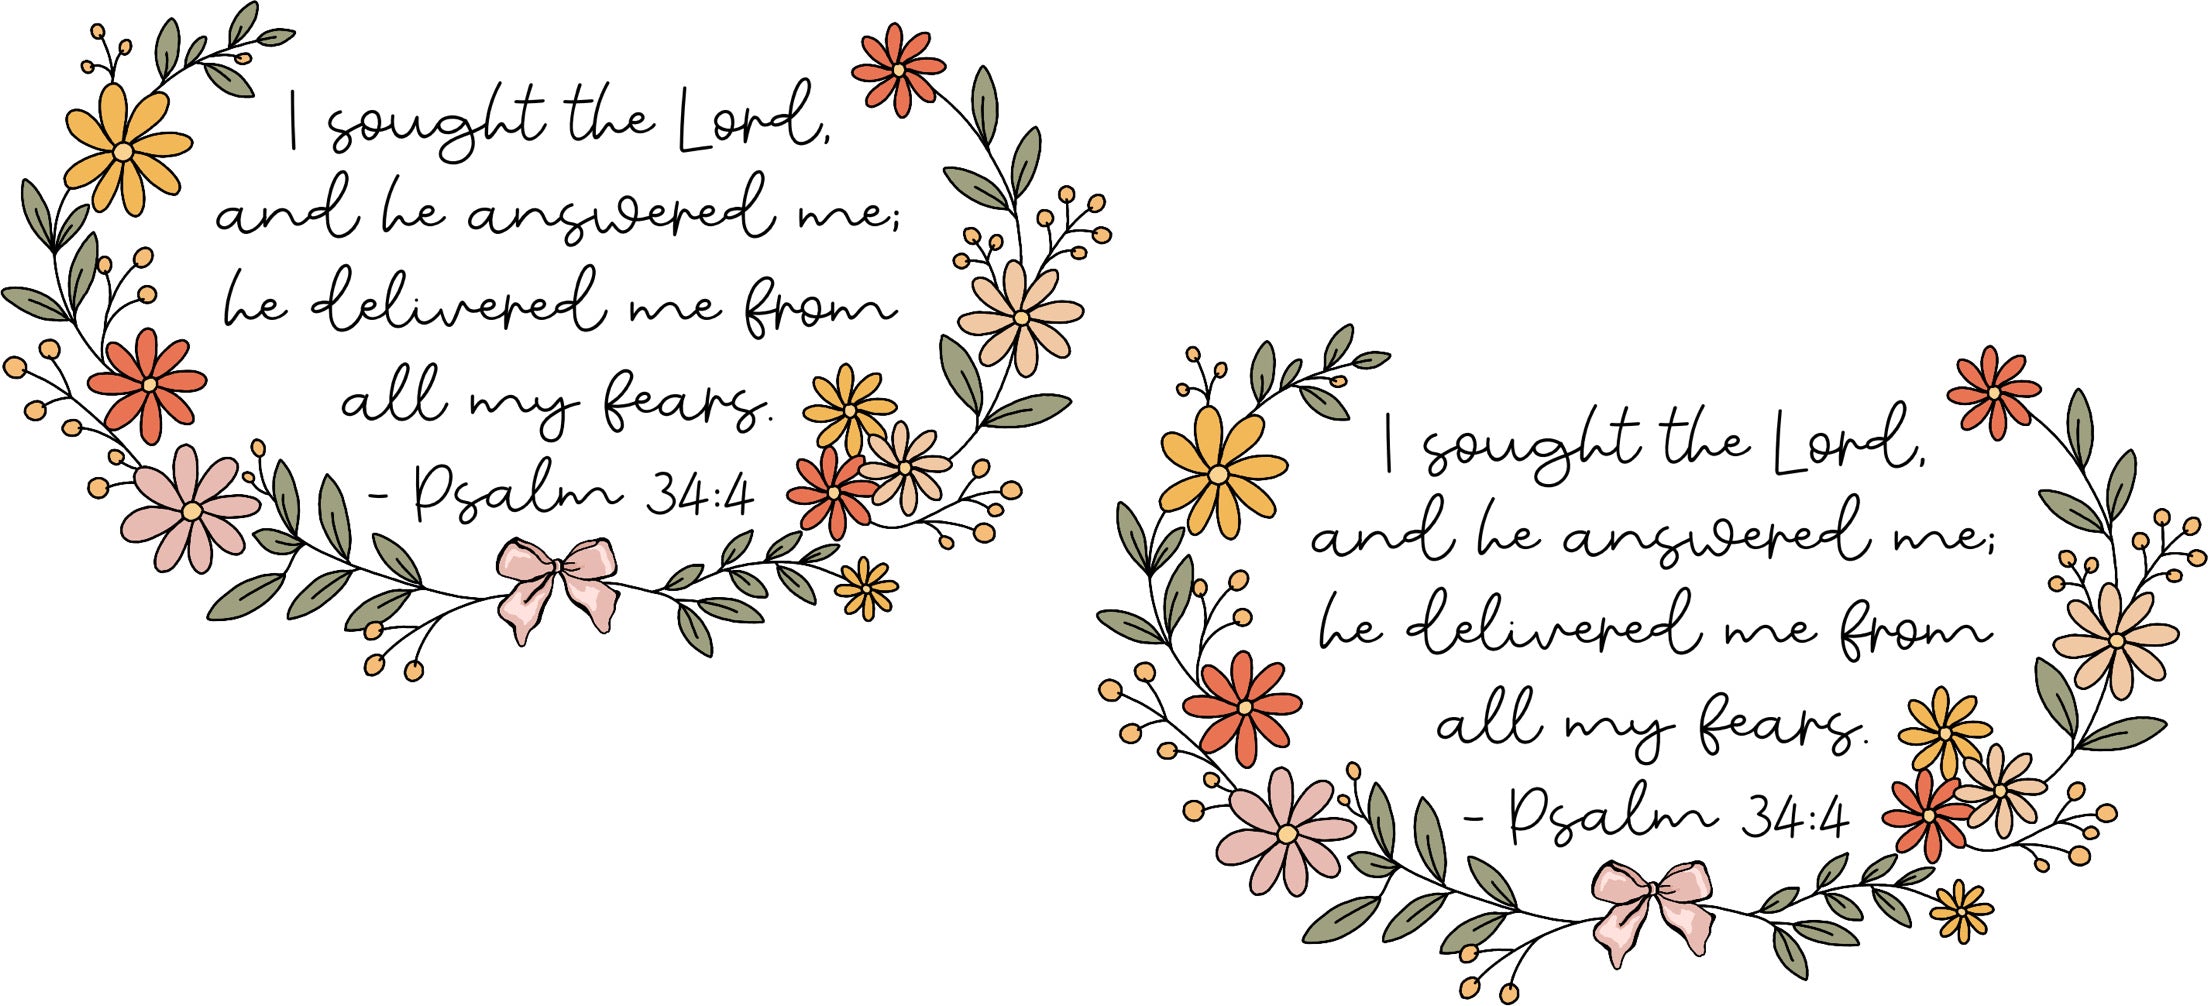 I sought the Lord,
and he answered me;
he delivered me from
all my fears.
- Psalm 34:4
I sought the Lord,
and he answered me;
he delivered me from
all my fears.
- Psalm 34:4